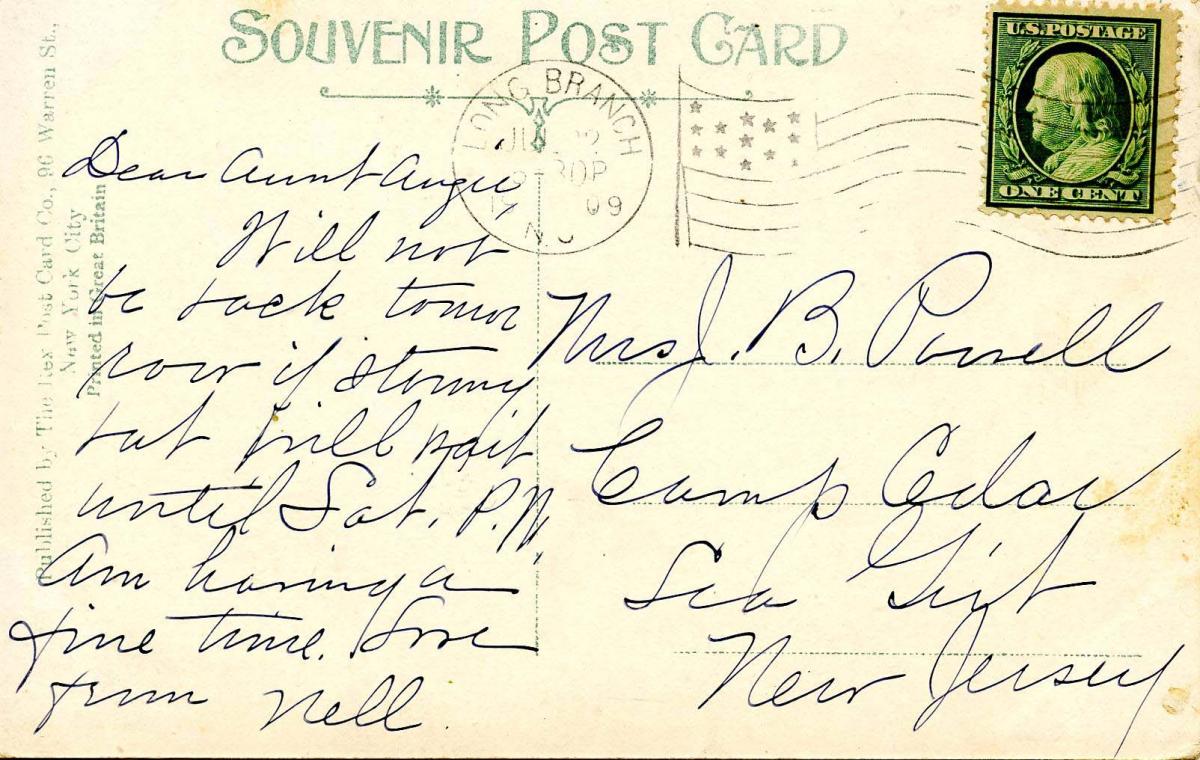 SOUVENIR POST CARD
U.S. POSTAGE
ONE CENT
LONG BRANCH
30P
09
N.J
Published by The Rex Post Card Co., 96 Warren St.,
New York City
Printed in Great Britain
Dear Aunt Angie,
Will not
be back tomor
row if stormy
but will wait
until Sat. P.M.
Am having a
fine time. Love
from Nell.
Mrs J. B. Powell
Camp Cedar
Sea Girt
New Jersey